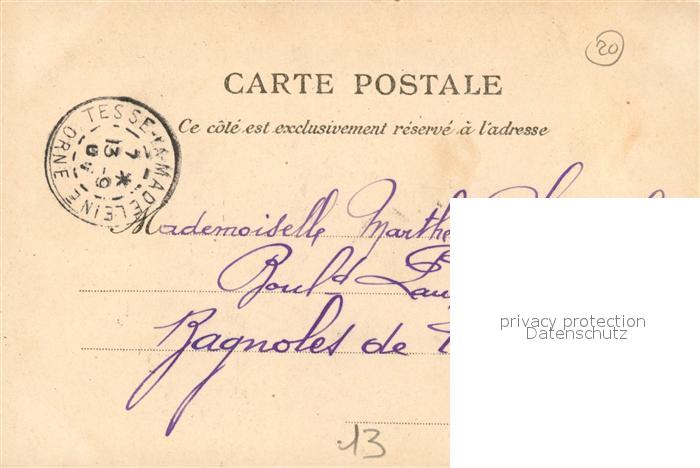 20
CARTE POSTALE
Ce côté est exclusivement réservé à l'adresse
TESSE-LA-MADELEINE
ORNE
13 -9
Mademoiselle Marthe
Boul^d
Bagnoles de
privacy protection
Datenschutz
13